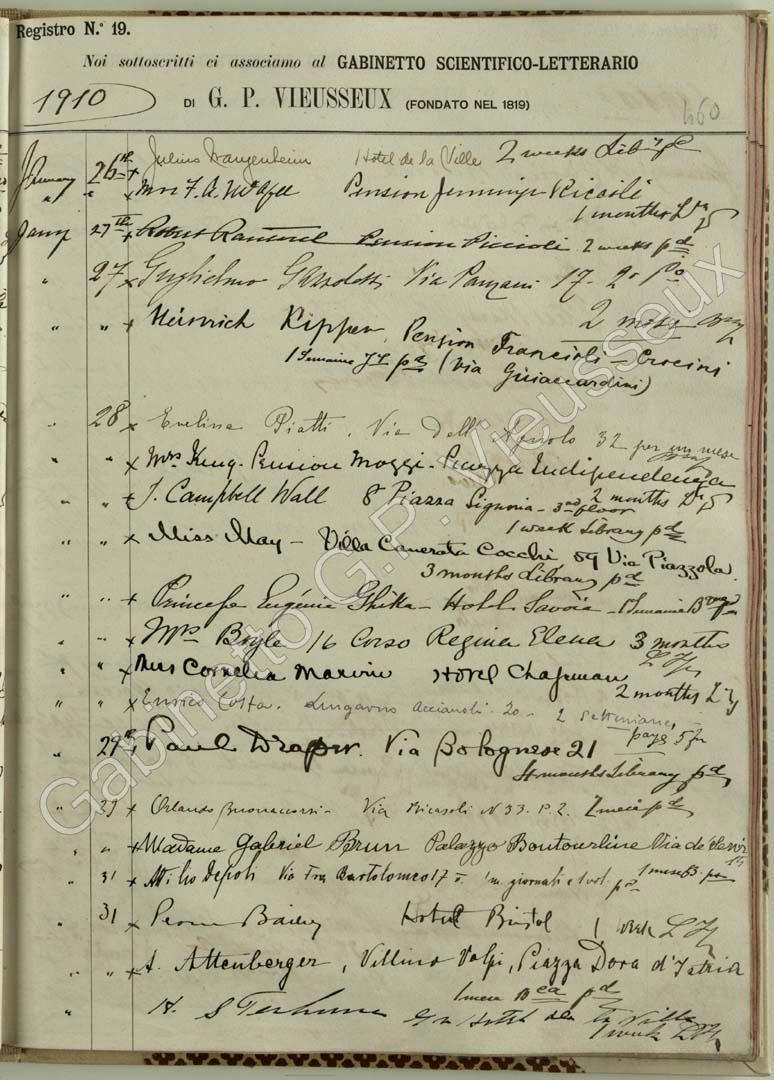 Registro N.° 19.
Noi sottoscritti ci associamo al GABINETTO SCIENTIFICO-LETTERARIO
1910
DI G. P. VIEUSSEUX (FONDATO NEL 1819)
460
January 26th Julius Wangenheim Hotel de la Ville 2 weeks Lib'y pd
" " Mrs F. A. Pension Jennings Ricasoli
1 months
Jany 27th Pension Piccioli 2 weeks pd
" 27 Guglielmo Via Panzani 17. 2°
2 mesi
" " Heinrich Kipper, Pension Francioli - Crocini
1 Semaine pd (Via Guiaccardini)
" 28 Evelina Piatti, Via dell' 32 per un mese
" " Mrs King - Pension Moggi - Piazza Indipendenza
2 months
" " J. Campbell Wall 8 Piazza Signoria - 3rd floor
1 week Library pd
" " Miss May - Villa Camerata Cocchi 59 Via Piazzola.
3 months Library pd
" " Princesse Eugénie Ghika - Hotel Savoia - 1 Semaine
" " Mrs Boyle 16 Corso Regina Elena 3 months
" " Miss Cornelia Marvin Hotel Chapman
2 months
" " Enrico Costa. Lungarno Acciaioli 20 - 2 settimane
" 29th Paul Draper. Via Bolognese 21
4 months Library pd
" 29 Orlando Buonaccorsi - Via Ricasoli N 33. P. 2.
" " Madame Gabriel Brun Palazzo Boutourline Via de'
15
" 31 Attilio Depoli Via Fra Bartolomeo 17 giornali e 1 vol. pd 1 mese
" 31 Bailey Hotel Bristol 1 week
" " A. Attenberger, Villino Volpi, Piazza Dora d'Istria
1 mese pd
" H. S Terhune Gr. Hotel de la Ville
1 week
Gabinetto G.P. Vieusseux